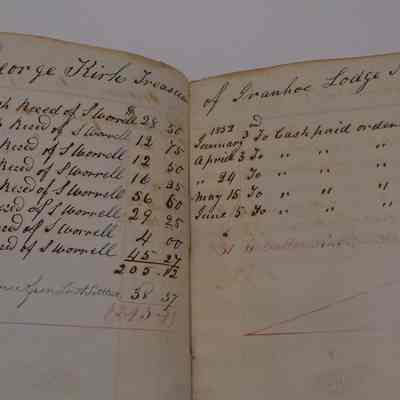 eorge Kirk Treasu
h Reced of S Worrell 28 50
Reced of S Worrell 12 75
Reced of S Worrell 12 50
Reced of S Worrell 16 25
Reced of S Worrell 56 60
eced of S Worrell 29 25
ed of S Worrell 4 00
ed of S Worrell 45-27
205-12
38 37
of Ivanhoe Lodge
1852
January 3 To Cash paid order
April 3 To " " "
" 24 To " " "
May 15 To " " "
June 5 To " " "